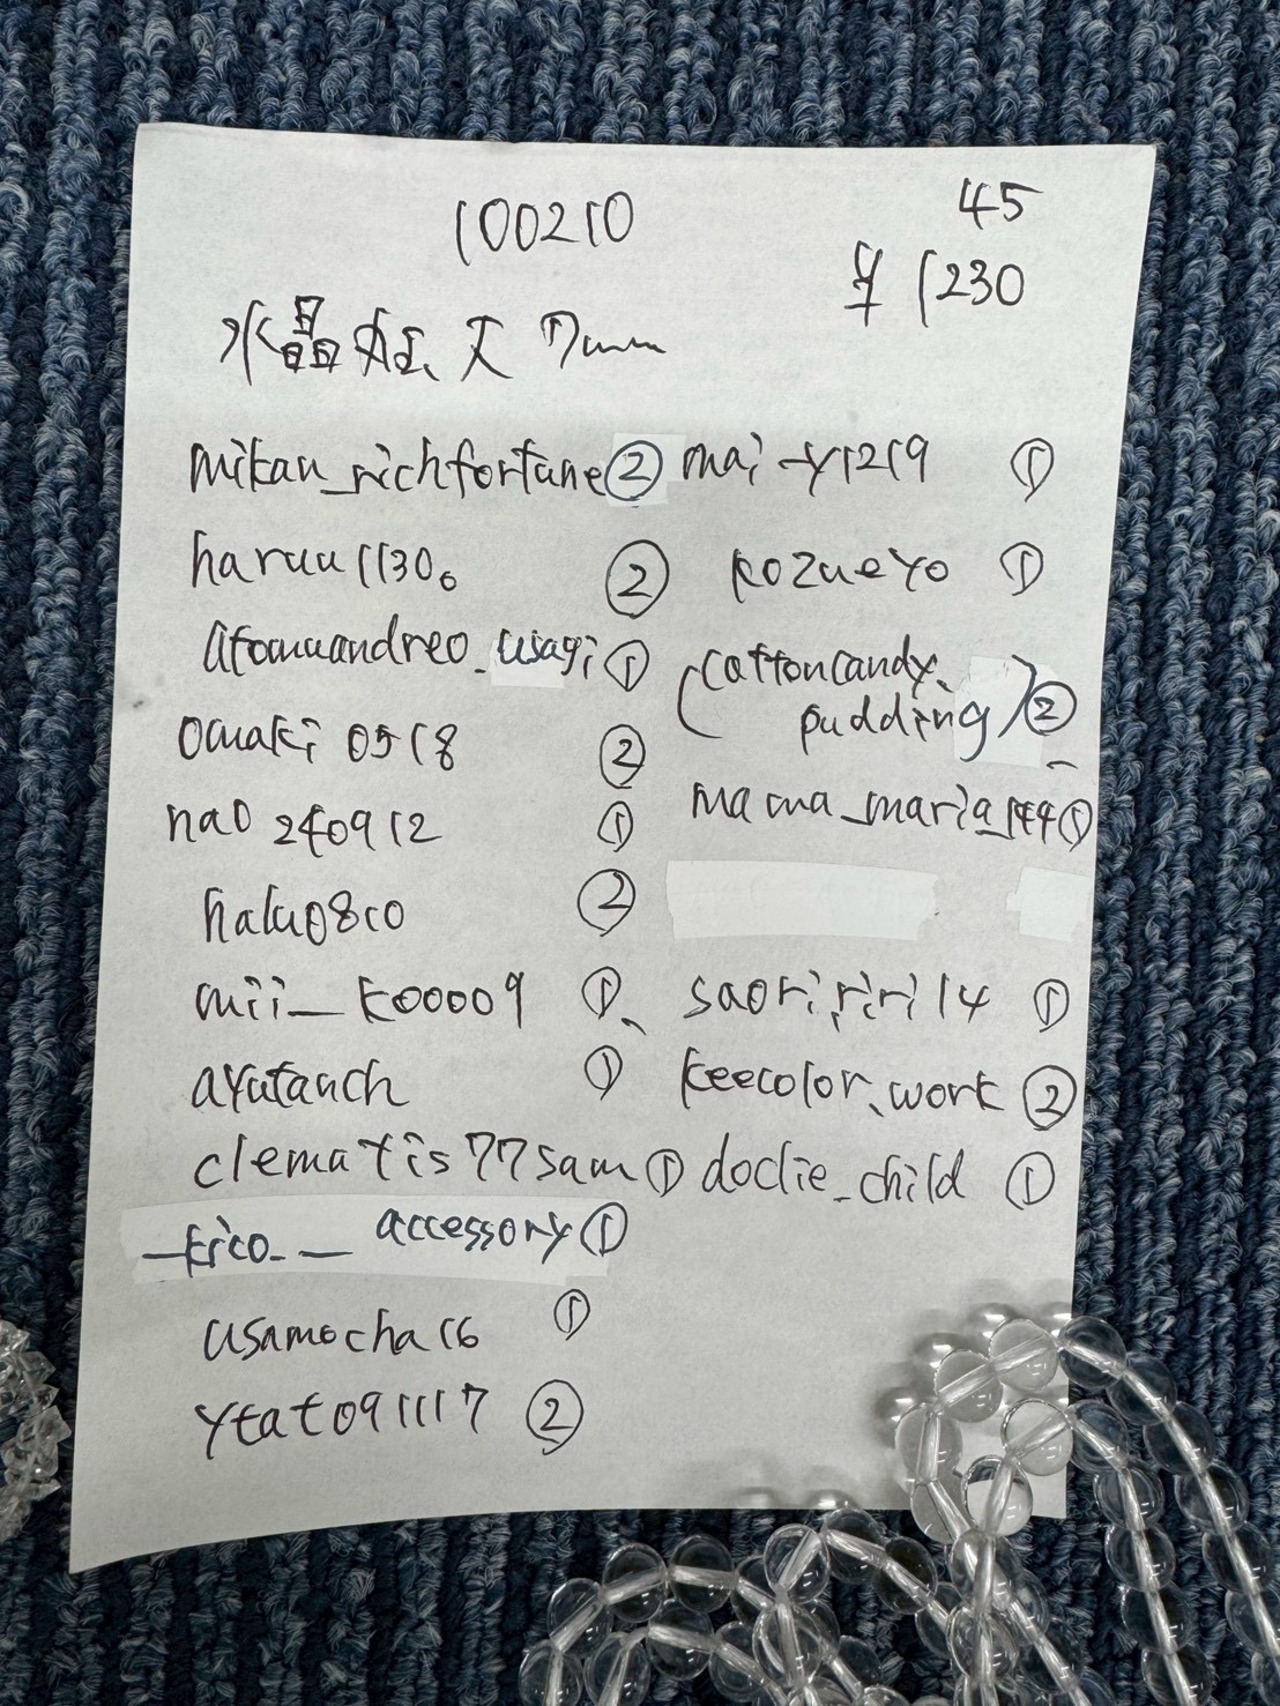 100210
45
¥1230
水晶 丸 大 7mm
mikan_richfortune ②
haruu1130。 ②
atomuandreo_usagi ①
omaki0518 ②
nao240912 ①
halu0810 ②
mii_k00009 ①
ayutanch ①
clematis77sam ①
_kico._ accessory ①
usamocha16 ①
ytat091117 ②
mai-y1219 ①
kozueyo ①
(cottoncandy.
pudding) ②
mama_maria_144 ①
saori.riri14 ①
keecolor.work ②
doclie_child ①